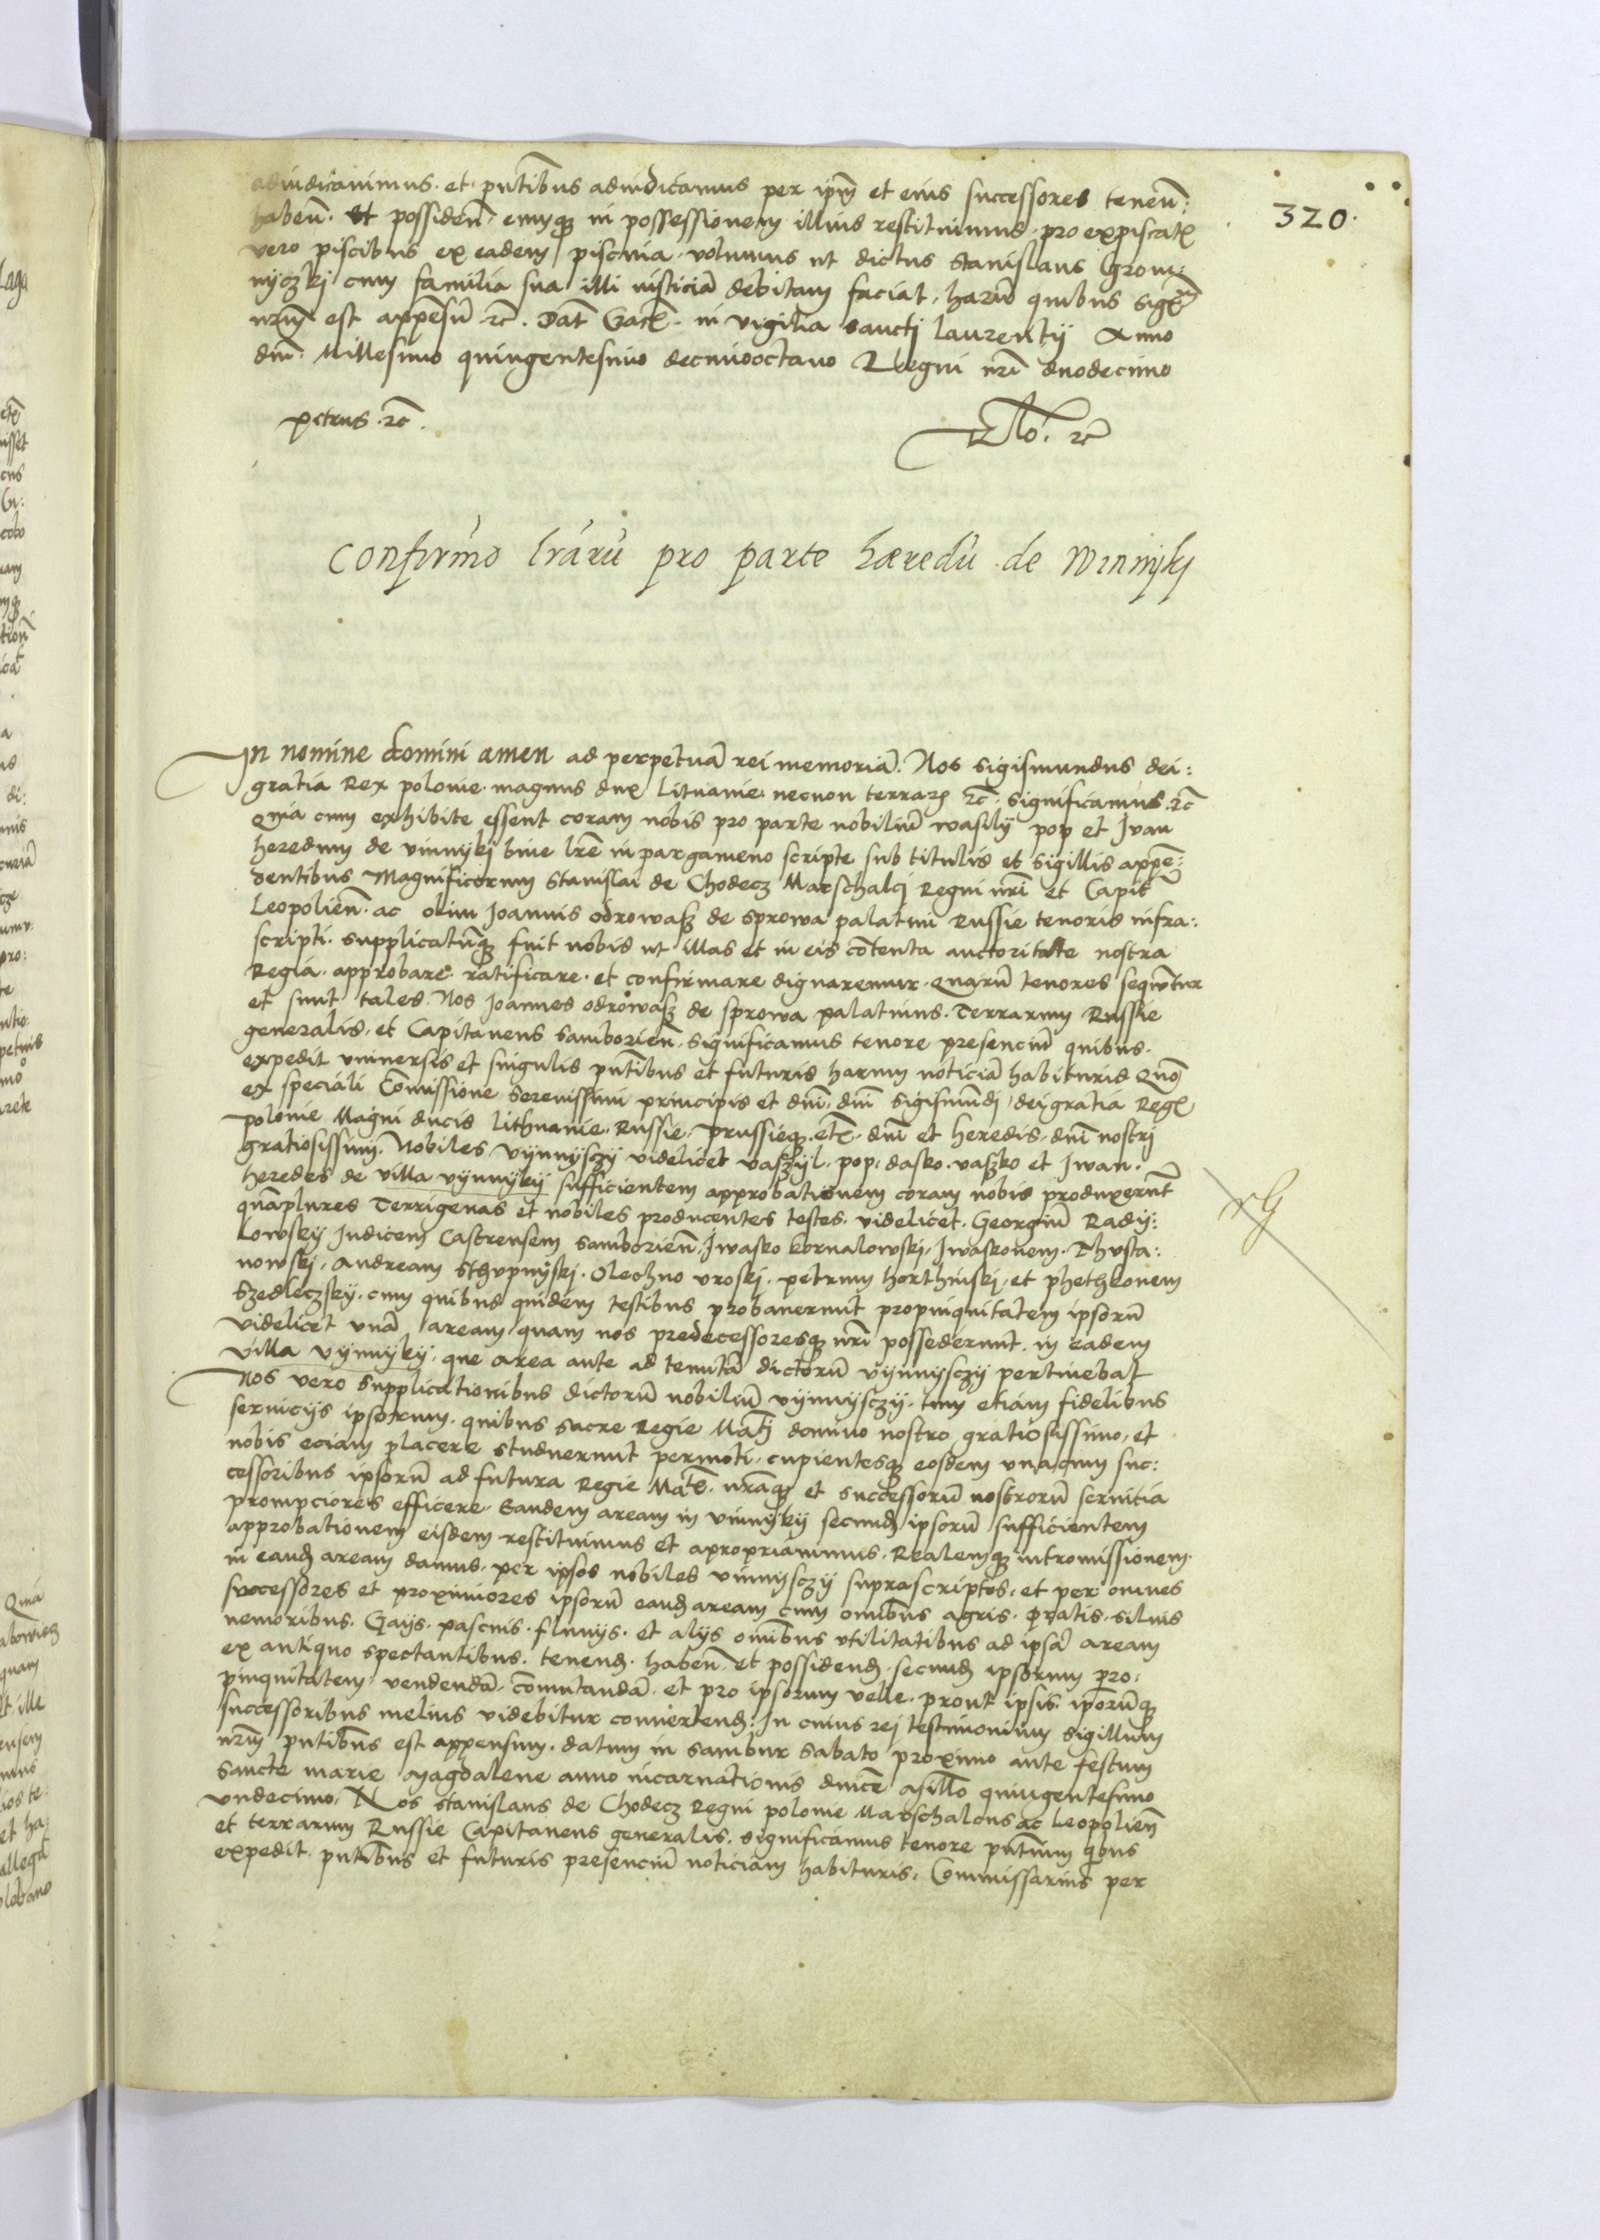 320.
adiudicavimus. et pntibus adiudicamus per ipm et eius successores tenen:
haben. et possiden. eumq in possessionem illius restituimus. pro expiscat
vero piscibus ex eadem piscina. volumus ut dictus Stanislaus
cum familia sua illi iusticiã debitam faciat, harũ quibus sig
nrm est appensũ rc. Dat Crac. in vigilia sancti Laurentij Anno
dni. Millesimo quingentesimo decimooctavo Regni nri duodecimo
petrus. rc.
rc
Confirmo lrarũ pro parte hæredũ de Winnyky
In nomine domini amen ad perpetuã rei memoriã. Nos Sigismundus dei:
gratia Rex polonie. magnus dux Lituanie. necnon terrar rc. significamus. rc
Quia cum exhibite essent coram nobis pro parte nobiliũ wasily pop et Ivan
heredum de vinnykj bine lre in pargameno scripte sub titulis et sigillis appen:
dentibus Magnificorum Stanislai de Chodecz Marschalcj Regni nri et Capit
Leopolien. ac olim Joannis odrowasz de sprowa palatini Russie tenoris infra:
scripti. supplicatũq fuit nobis ut illas et in eis cõtenta auctoritate nostra
Regia. approbare ratificare. et confirmare dignaremur. Quarũ tenores sequntur
et sunt tales. Nos Joannes odrowasz de sprowa palatinus. Terrarum Russie
generalis. et Capitaneus Samborien. Significamus tenore presenciũ quibus.
expedit universis et singulis pntibus et futuris harum noticiã habituris Quo
ex speciali Cõmissione Serenissimi principis et dni. dni Sigismundj dei gratia Reg
polonie Magni ducis Lithuanie. Russie. prussieq. etc. dni et heredis. dni nostri
gratiosissimi. Nobiles vynnysczy videlicet vaszyl. pop. dasko. vasko et Iwan.
heredes de villa vynnykij sufficientem approbationem coram nobis produxerunt
quãplures Terrigenas et nobiles producentes testes. videlicet. Georgiũ Radij:
Lowskij Judicem Castrensem Samborien. Jwasko kornalowskj. Jwaskonem. Thusta:
nowskj. Andream sthupnyskj. Olechno uroskj. petrum horthinskj. et phethkonem
Szedleczskij. cum quibus quidem testibus probaverunt propinquitatem ipsorũ
videlicet unã aream quam nos predecessoresq nri possederunt. in eadem
villa vynnyky. que area ante ad tenutã dictorũ vynnysczy pertinebat
Nos vero supplicationibus dictorũ nobiliũ vynnysczij. tum etiam fidelibus
serviciis ipsorum. quibus sacre Regie Matj domino nostro gratiosissimo. et
nobis eciam placere studuerunt permoti. cupientesq eosdem una cum suc:
cessoribus ipsorũ ad futura Regie Mats. nraq et successorũ nostrorũ servitia
prompciores efficere. Eandem aream in vinnykij secund ipsorũ sufficientem
approbationem eisdem restituimus et apropriavimus. Realemq intromissionem.
in eand aream damus. per ipsos nobiles vinnysczy suprascriptos. et per omnes
successores et proximiores ipsorũ eand aream cum omibus agris. pratis. silvis
nemoribus. Gays. pascuis. fluvijs. et alijs omibus utilitatibus ad ipsã aream
ex antiquo spectantibus. tenend. haben. et possidend. secund ipsorum pro:
pinquitatem vendendã. cõmutandã. et pro ipsorum velle. prout ipsis. iporũq
successoribus melius videbitur convertend. In cuius rej testimonium sigillum
nrm pntibus est appensum. datum in Sambor sabato proximo ante festum
Sancte marie Magdalene anno incarnationis dnice Millo quingentesimo
undecimo. Nos Stanislaus de Chodecz Regni polonie Marschalcus ac Leopolien
et terrarum Russie Capitaneus generalis. significamus tenore pntium qbus
expedit. pntibus et futuris presenciũ noticiam habituris. Commissarius per